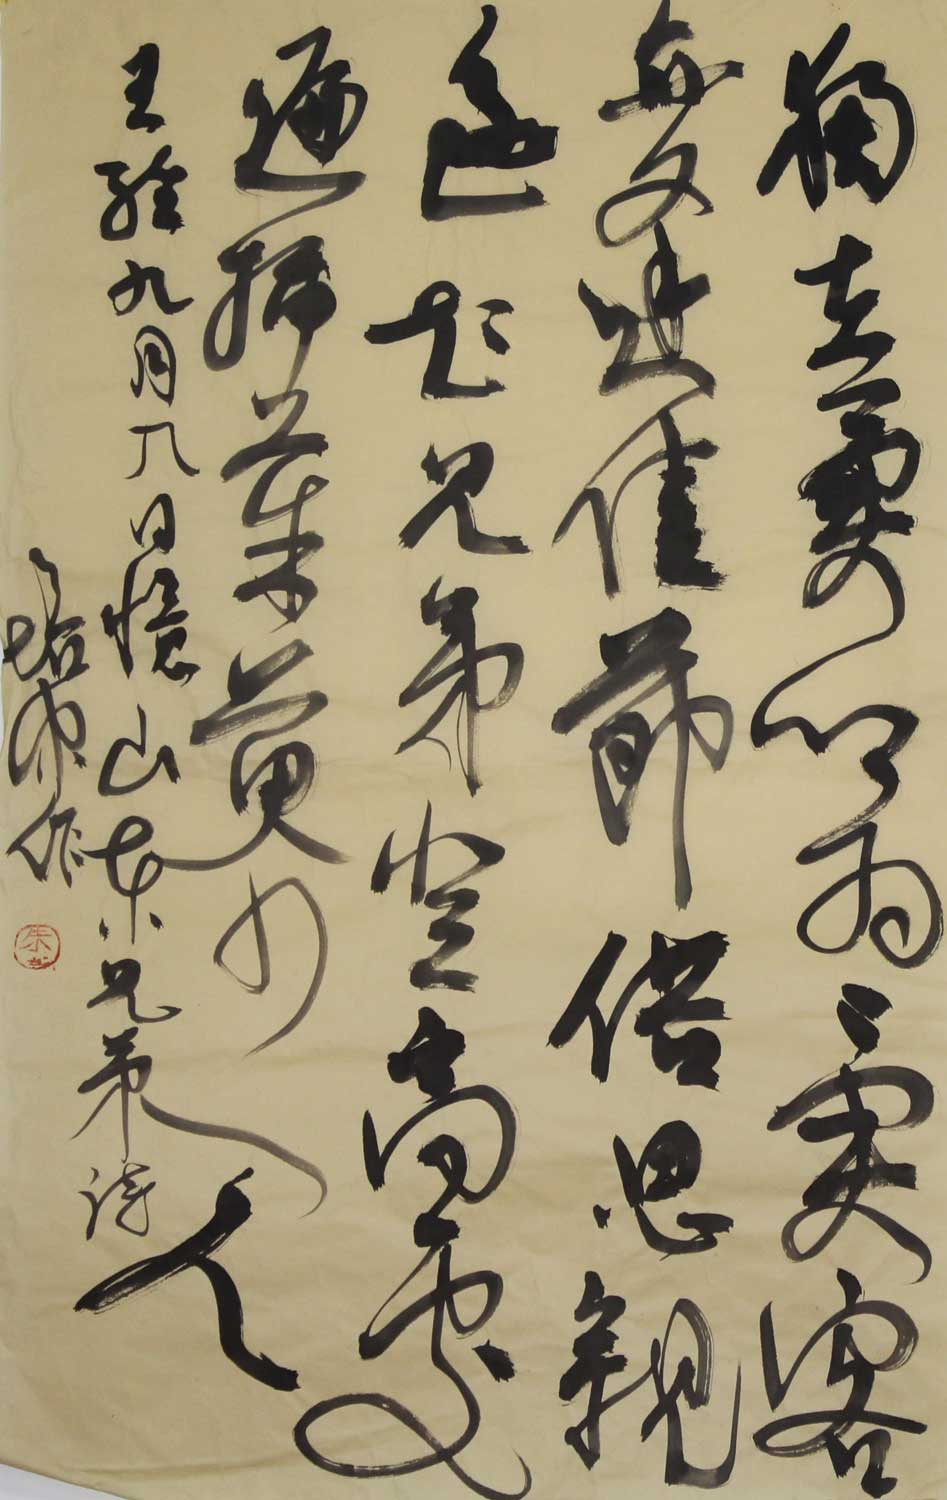 獨在異鄉为異客
每逢佳節倍思親
遙知兄弟登高處
遍插茱萸少一人
王維九月九日憶山東兄弟詩
作